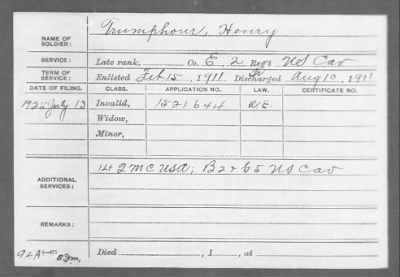 NAME OF SOLDIER: Trumphour, Henry
SERVICE: Late rank, Co. E, 2 Reg't US Cav
TERM OF SERVICE: Enlisted Feb 15, 1911. Discharged Aug 10, 1911
DATE OF FILING. CLASS. APPLICATION NO. LAW. CERTIFICATE NO.
1925 July 13 Invalid, 1521644
Widow,
Minor,
ADDITIONAL SERVICES: B 2 & 65 US Cav
REMARKS:
Died , 1 , at